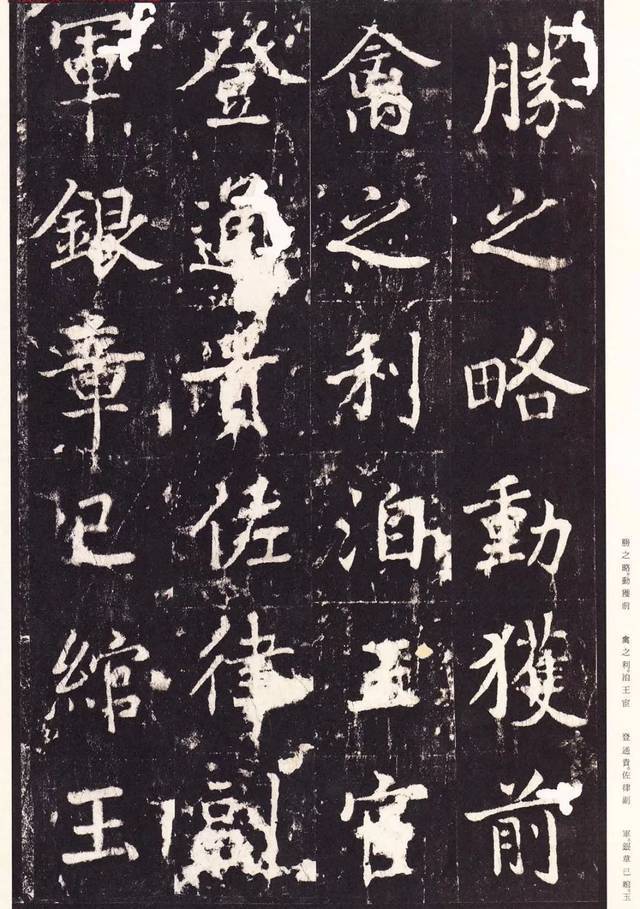 勝之略動獲前
禽之利洎王官
登通貴佐律副
軍銀章已綰王
勝之略。動獲前
禽之利。洎王宦
登通貴。佐律副
軍。銀章已綰。玉